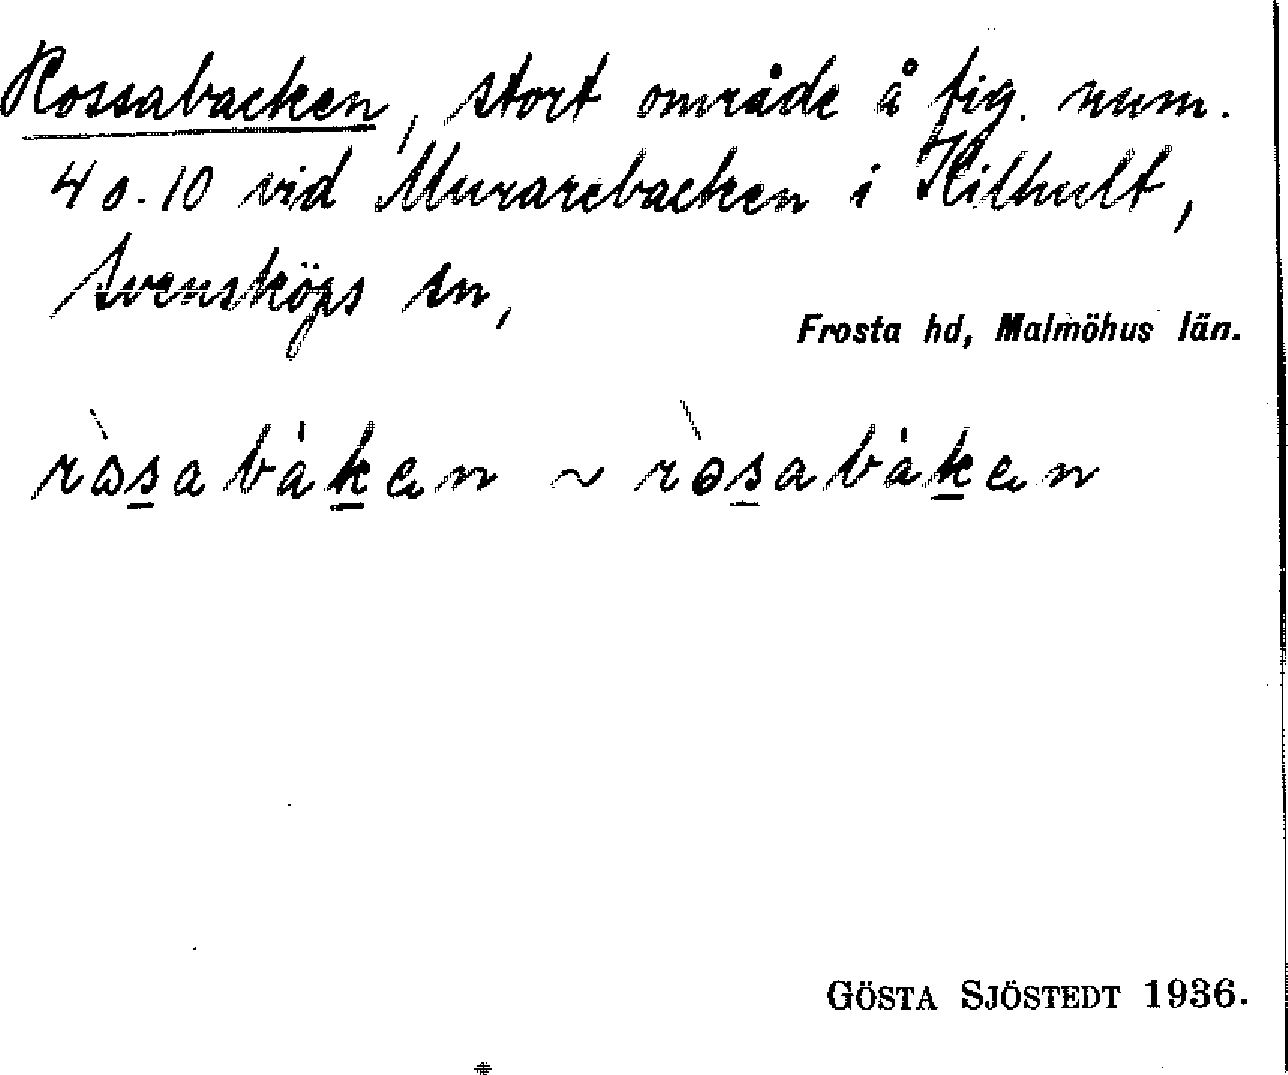 Rossabacken, stort område å fig. num.
4 o. 10 vid Murarebacken i Kilhult,
Svensköps sn,
Frosta hd, Malmöhus län.
ròsabáken ~ ròsabáken
GÖSTA SJÖSTEDT 1936.